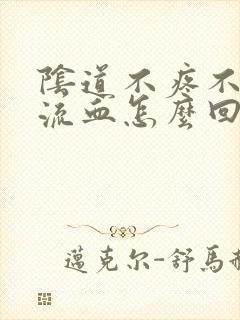 陰道不疼不
流血怎麼回
邁克尔-舒馬赫